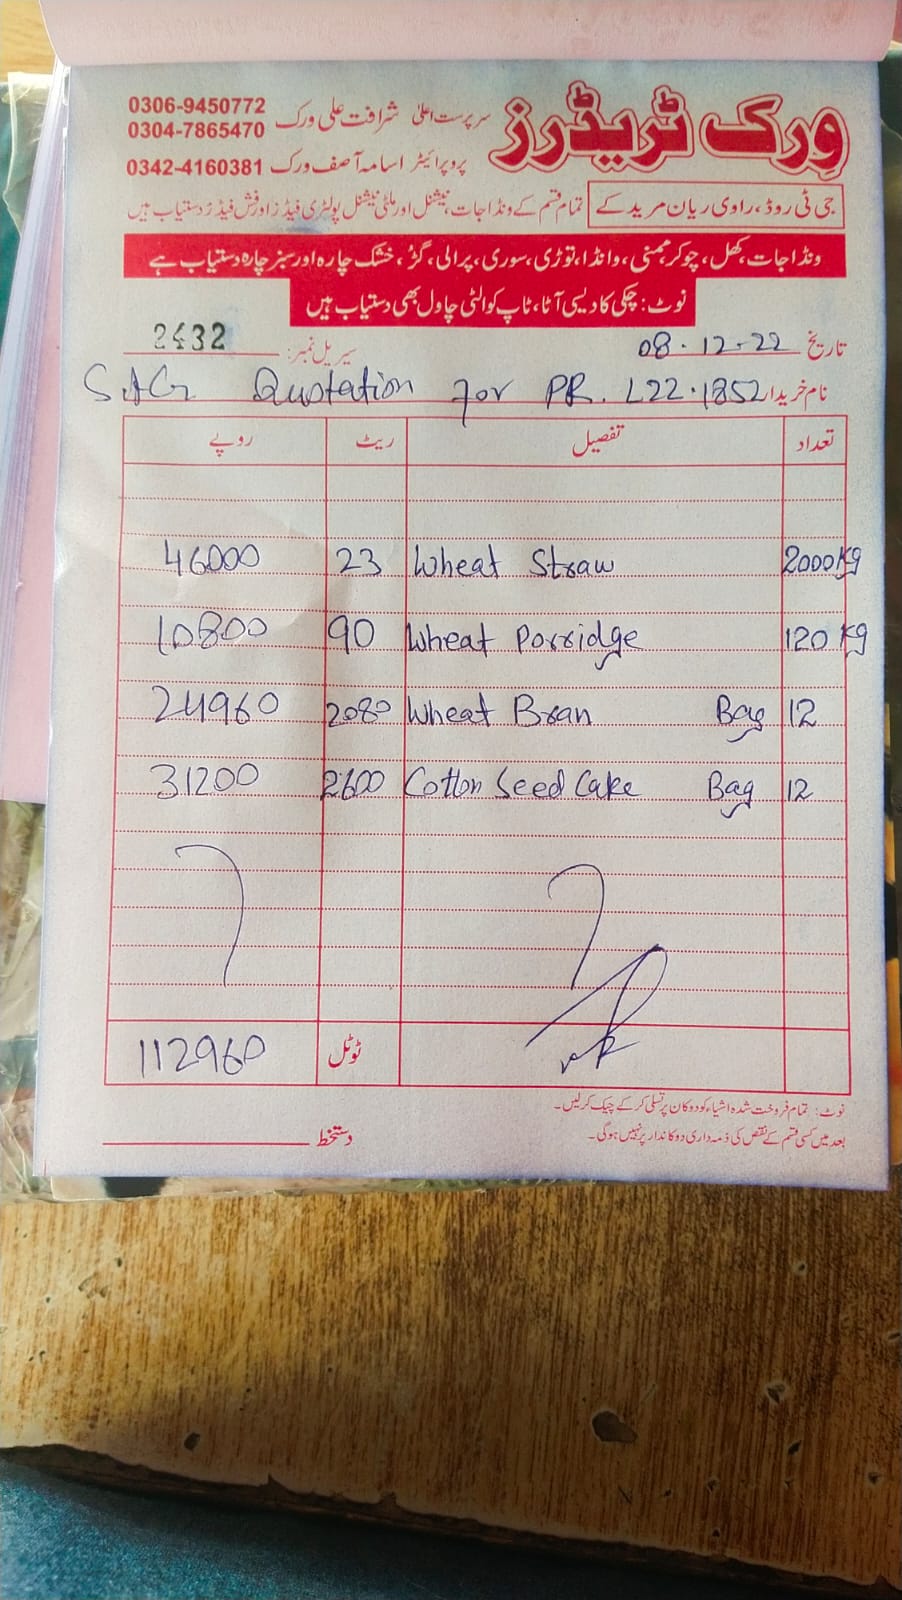 ورک ٹریڈرز
سرپرست اعلیٰ شرافت علی ورک 0306-9450772
0304-7865470
پروپرائیٹر اسامہ آصف ورک 0342-4160381
جی ٹی روڈ، راوی ریان مرید کے تمام قسم کے ونڈا جات، نیشنل اور ملٹی نیشنل پولٹری فیڈز اور فش فیڈز دستیاب ہیں
ونڈا جات، کھل، چوکر، ممنی، وانڈا، توڑی، سوری، پرالی، گڑ، خشک چارہ اور سبز چارہ دستیاب ہے
نوٹ: چکی کا دیسی آٹا، ٹاپ کوالٹی چاول بھی دستیاب ہیں
تاریخ 08-12-22 سیریل نمبر: 2432
نام خریدار Quotation for PR. L22-1852
تعداد تفصیل ریٹ روپے
2000 Kg Wheat Straw 23 46000
120 Kg Wheat Porridge 90 10800
12 Bag Wheat Bran 2080 24960
12 Bag Cotton Seed Cake 2600 31200
ٹوٹل 112960
نوٹ: تمام فروخت شدہ اشیاء کو دوکان پر تسلی کر کے چیک کرلیں۔
بعد میں کسی قسم کے نقص کی ذمہ داری دوکاندار پر نہیں ہوگی۔
دستخط